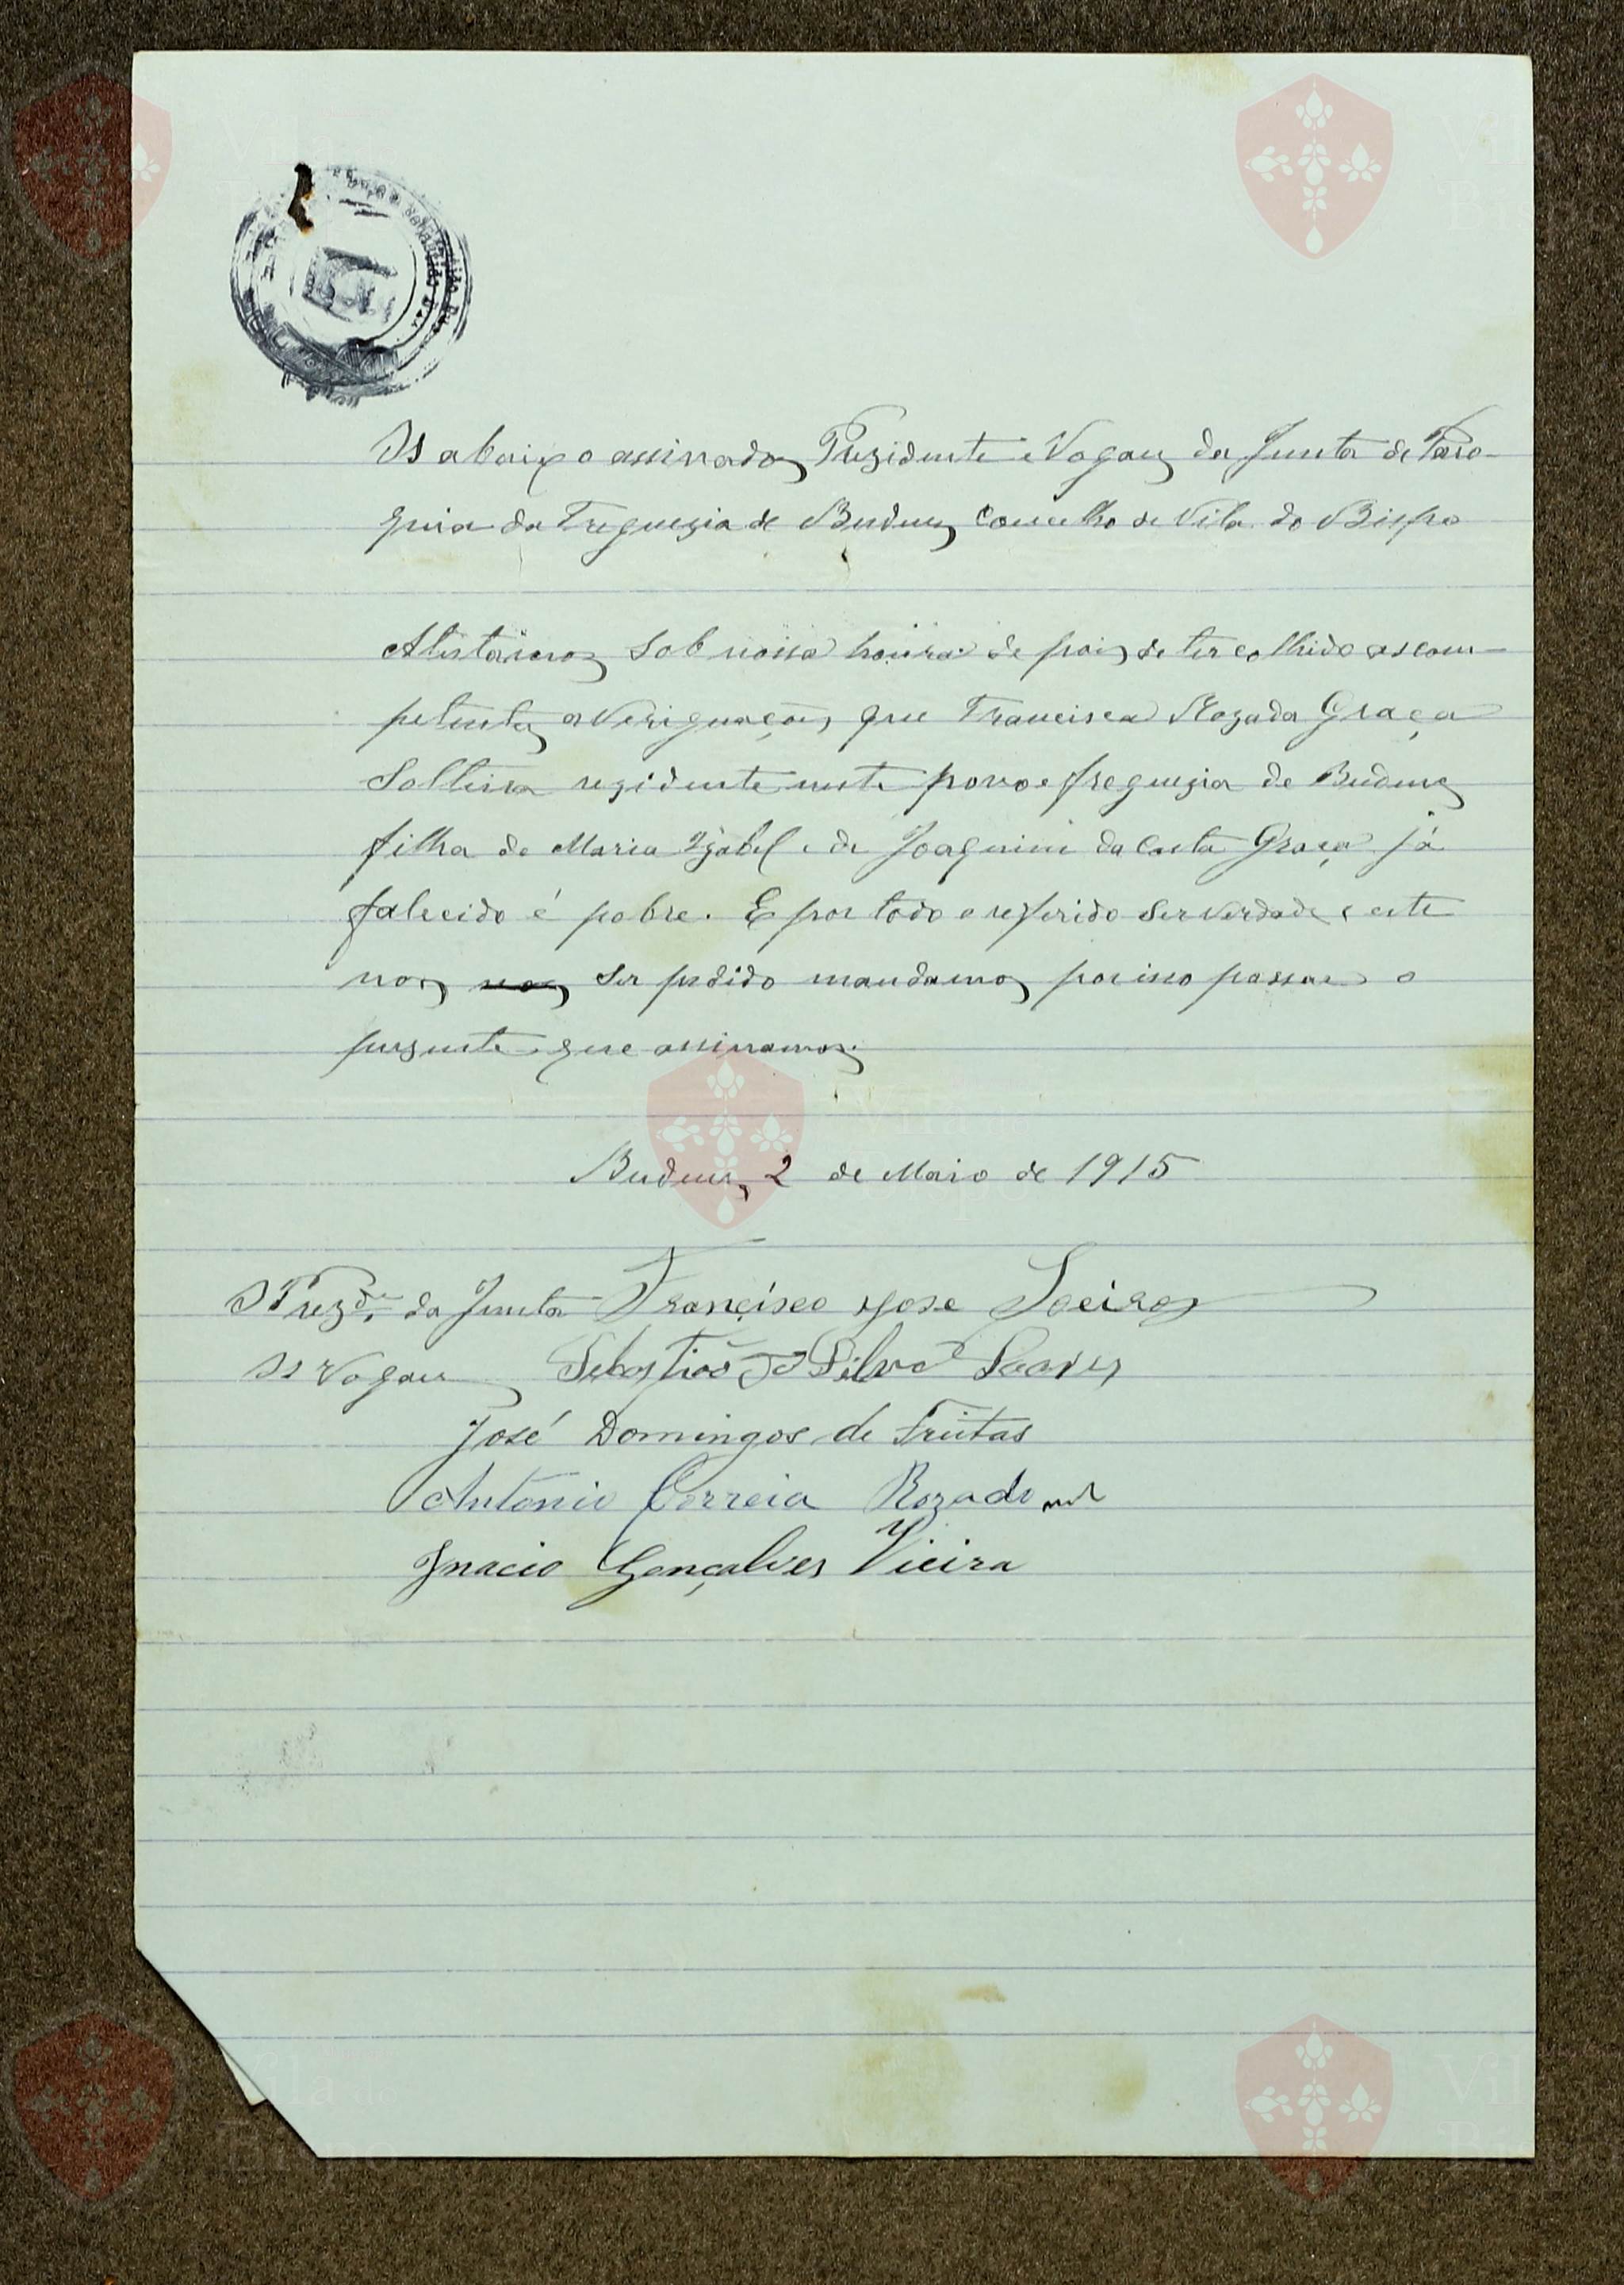 Os abaixo assinados Prezidente e Vogaes da Junta de Paro-
quia da Freguezia de Budens concelho de Vila do Bispo
Atestâmos sob nossa honra de pois de ter colhido as com-
petentes averiguações que Francisca Rozada Graça
Solteira rezidente neste povo e freguezia de Budens
filha de Maria Izabel e de Joaquim da Costa Graça já
falecido é pobre. E por todo o referido ser verdade e este
nos nos ser pedido mandamos por isso passar o
prezente que assinamos.
Budens, 2 de Maio de 1915
O Prezde. da Junta Francisco Jose Soeiro
Os Vogaes Sebastião da Silva Soares
José Domingos de Freitas
Antonio Correia Rozado
Ignacio Gonçalves Vieira